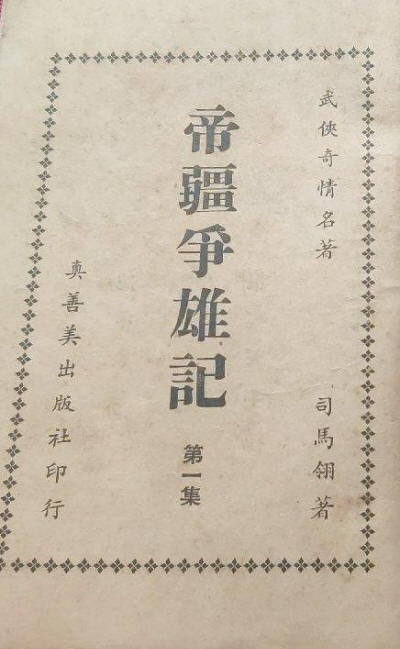 武俠奇情名著
司馬翎著
帝疆爭雄記
第一集
真善美出版社印行